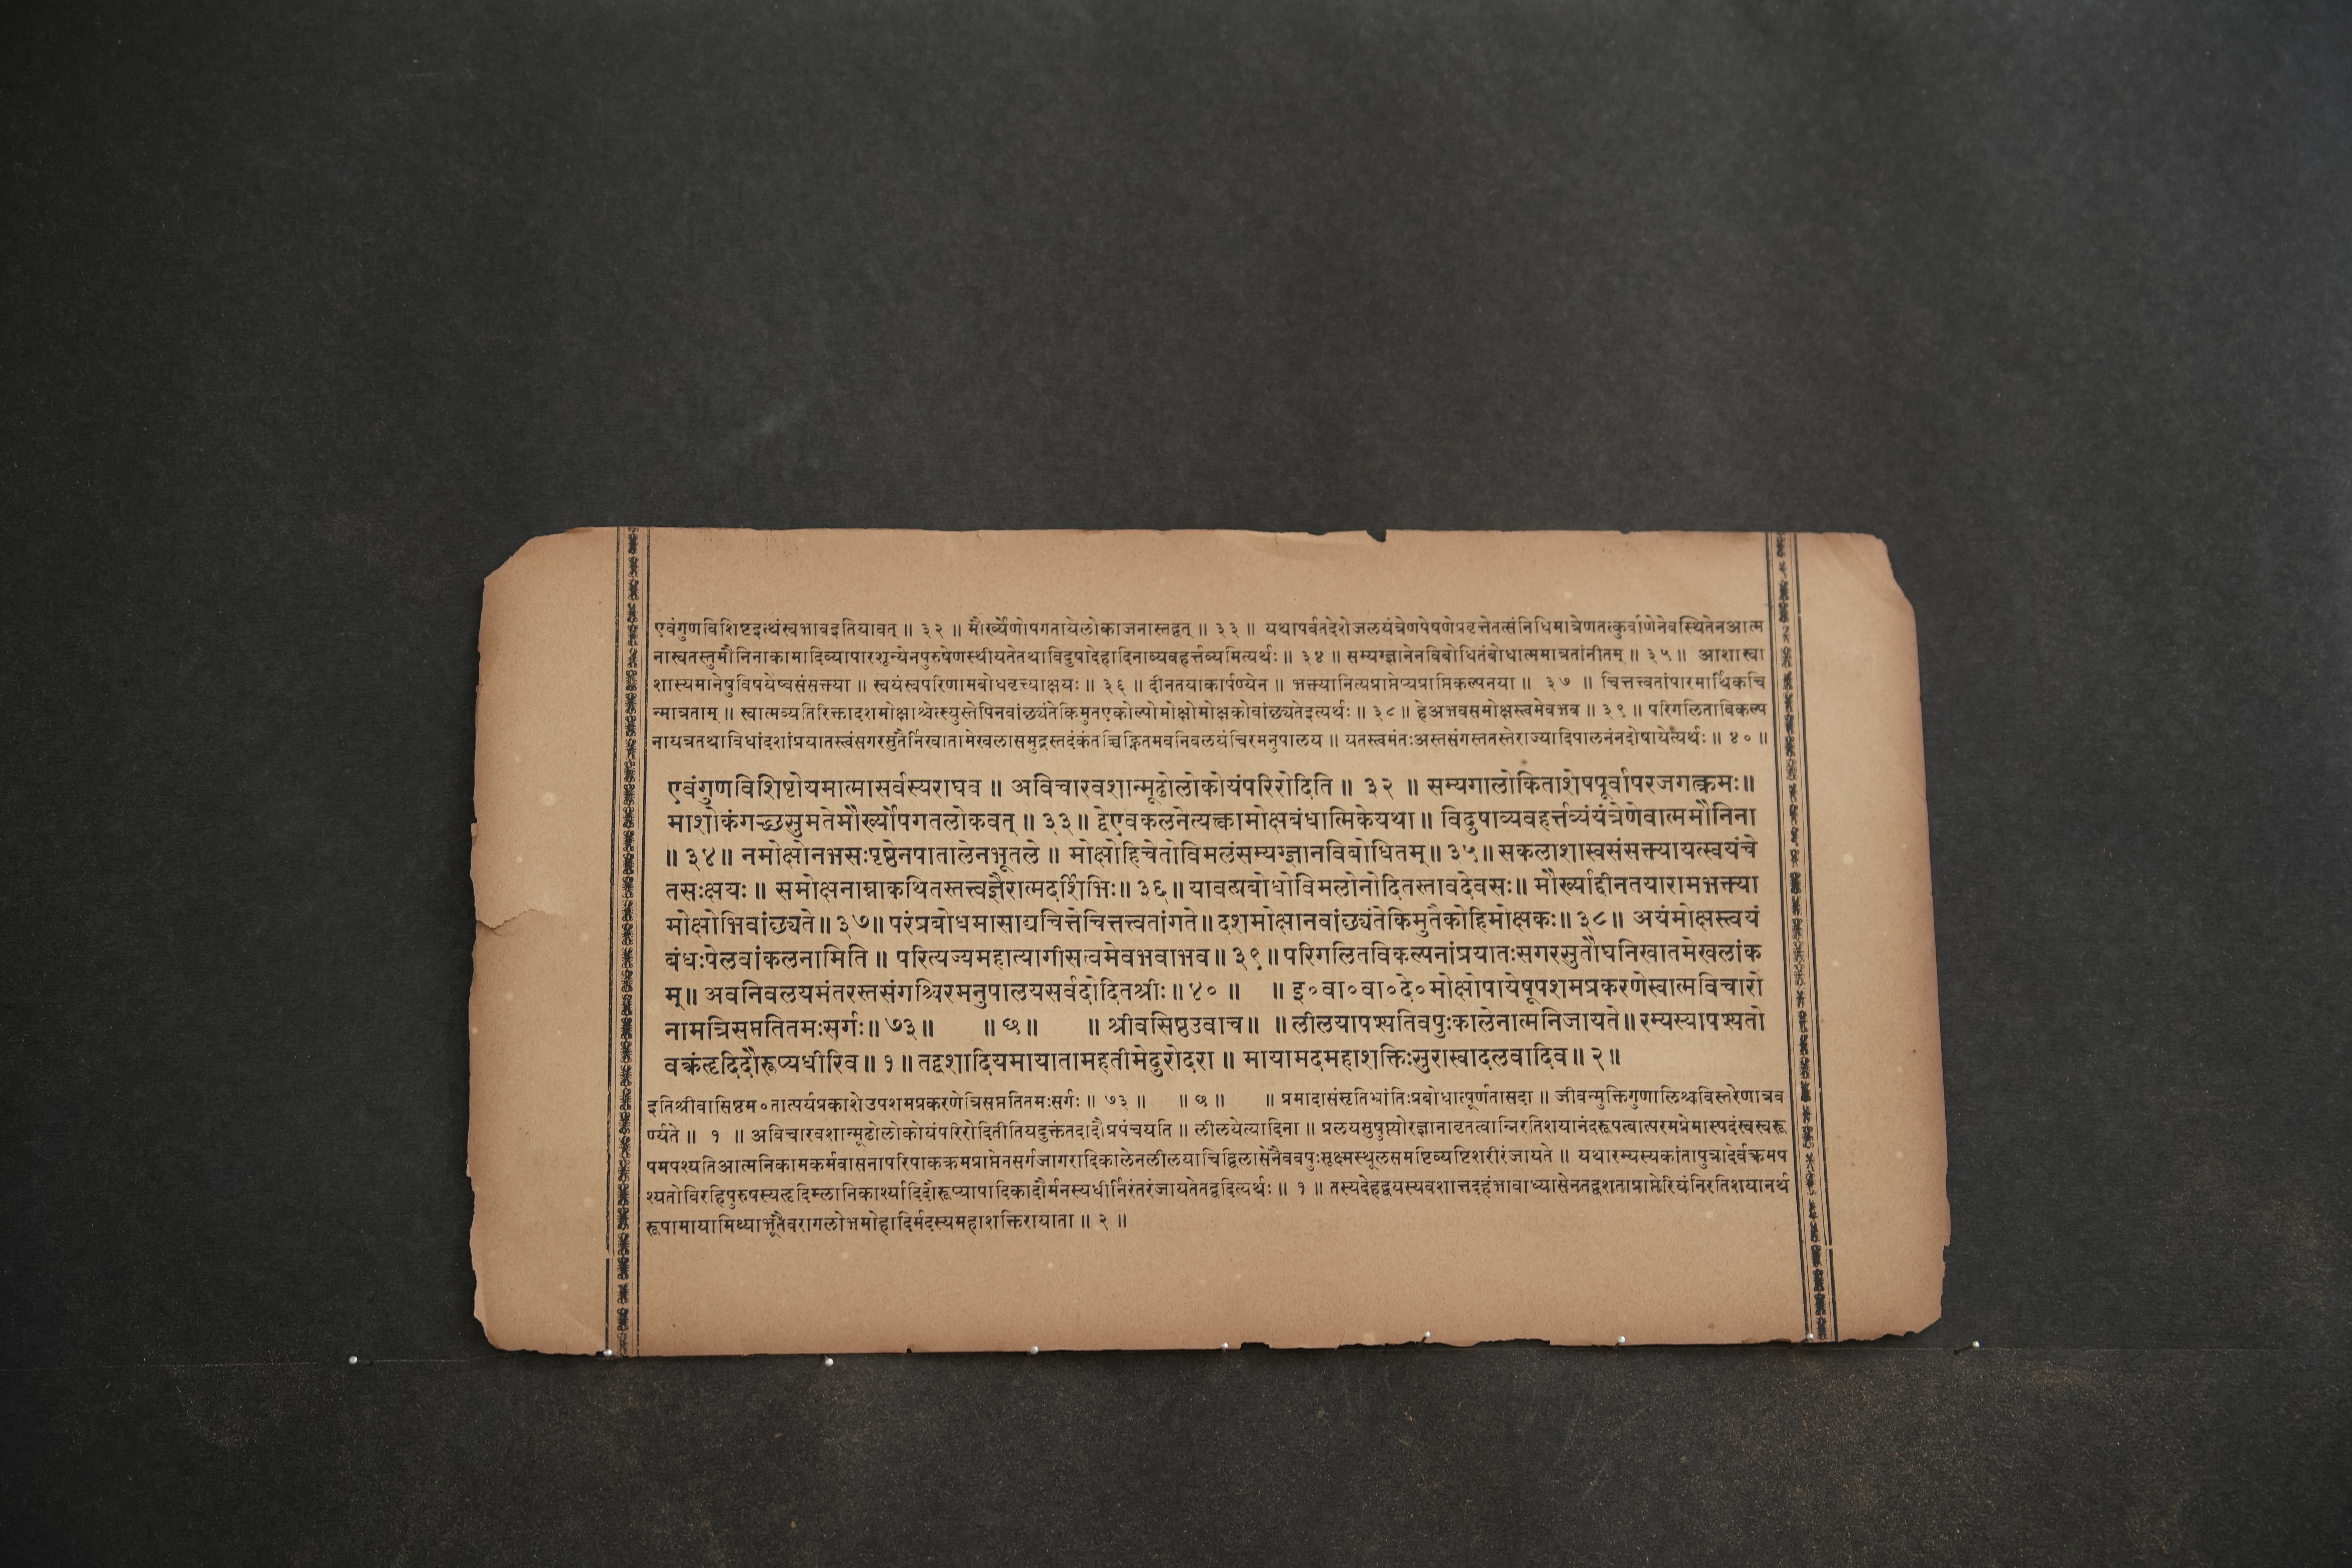 एवंगुणविशिष्टइत्थंस्वभावइतियावत् ॥ ३२ ॥ मौर्ख्येणोपगतायेलोकाजनास्तद्वत् ॥ ३३ ॥ यथापर्वतदेशेजलयंत्रेणपेषणेप्रवृत्तेतत्संनिधिमात्रेणतत्कुर्वाणेनेवस्थितेनआत्म
नास्वतस्तुमौनिनाकामादिव्यापारशून्येनपुरुषेणस्थीयतेतथाविदुषादेहादिनाव्यवहर्त्तव्यमित्यर्थः ॥ ३४ ॥ सम्यग्ज्ञानेनविबोधितंबोधात्ममात्रतांनीतम् ॥ ३५ ॥ आशास्वा
शास्यमानेषुविषयेष्वसंसक्त्या ॥ स्वयंस्वपरिणामबोधवृत्त्याक्षयः ॥ ३६ ॥ दीनतयाकार्पण्येन ॥ भक्त्यानित्यप्राप्तेप्यप्राप्तिकल्पनया ॥ ३७ ॥ चित्तत्त्वतांपारमार्थिकचि
न्मात्रताम् ॥ स्वात्मव्यतिरिक्तादशमोक्षाश्चेत्स्युस्तेपिनवांछ्यंतेकिमुतएकोल्पोमोक्षोमोक्षकोवांछ्यतेइत्यर्थः ॥ ३८ ॥ हेअभवसमोक्षस्त्वमेवभव ॥ ३९ ॥ परिगलिताविकल्प
नायत्रतथाविधांदशांप्रयातस्त्वंसगरसुतैर्निखातामेखलासमुद्रस्तदंकंतच्चिह्नितमवनिवलयंचिरमनुपालय ॥ यतस्त्वमंतःअस्तसंगस्ततस्तेराज्यादिपालनंनदोषायेत्यर्थः ॥ ४० ॥
एवंगुणविशिष्टोयमात्मासर्वस्यराघव ॥ अविचारवशान्मूढोलोकोयंपरिरोदिति ॥ ३२ ॥ सम्यगालोकिताशेषपूर्वापरजगत्क्रमः॥
माशोकंगच्छसुमतेमौर्ख्योपगतलोकवत् ॥ ३३॥ द्वेएवकलनेत्यक्त्वामोक्षबंधात्मिकेयथा॥ विदुषाव्यवहर्त्तव्यंयंत्रेणेवात्ममौनिना
॥३४॥ नमोक्षोनभसःपृष्ठेनपातालेनभूतले ॥ मोक्षोहिचेतोविमलंसम्यग्ज्ञानविबोधितम्॥३५॥सकलाशास्वसंसक्त्यायत्स्वयंचे
तसःक्षयः ॥ समोक्षनाम्नाकथितस्तत्त्वज्ञैरात्मदर्शिभिः॥३६॥यावत्प्रबोधोविमलोनोदितस्तावदेवसः॥ मौर्ख्याद्दीनतयारामभक्त्या
मोक्षोभिवांछ्यते॥३७॥परंप्रबोधमासाद्यचित्तेचित्तत्त्वतांगते॥दशमोक्षानवांछ्यंतेकिमुतैकोहिमोक्षकः॥३८॥ अयंमोक्षस्त्वयं
बंधःपेलवांकलनामिति ॥ परित्यज्यमहात्यागीसत्वमेवभवाभव॥३९॥परिगलितविकल्पनांप्रयातःसगरसुतौघनिखातमेखलांक
म्॥ अवनिवलयमंतरस्तसंगश्चिरमनुपालयसर्वदोदितश्रीः॥४०॥ ॥इ०वा०वा०दे०मोक्षोपायेषूपशमप्रकरणेस्वात्मविचारो
नामत्रिसप्ततितमःसर्गः॥७३॥ ॥छ॥ ॥श्रीवसिष्ठउवाच॥ ॥लीलयापश्यतिवपुःकालेनात्मनिजायते॥रम्यस्यापश्यतो
वक्त्रंहृदिदौरूप्यधीरिव॥१॥तद्वशादियमायातामहतीमेदुरोदरा॥ मायामदमहाशक्तिःसुरास्वादलवादिव॥२॥
इतिश्रीवासिष्ठम०तात्पर्यप्रकाशेउपशमप्रकरणेत्रिसप्ततितमःसर्गः ॥ ७३ ॥ ॥ छ ॥ ॥ प्रमादासंसृतिभ्रांतिःप्रबोधात्पूर्णतासदा ॥ जीवन्मुक्तिगुणालिश्चविस्तरेणात्रव
र्ण्यते ॥ १ ॥ अविचारवशान्मूढोलोकोयंपरिरोदितीतियदुक्तंतदादौप्रपंचयति ॥ लीलयेत्यादिना ॥ प्रलयसुषुप्त्योरज्ञानावृतत्वान्निरतिशयानंदरूपत्वात्परमप्रेमास्पदंस्वस्वरू
पमपश्यतिआत्मनिकामकर्मवासनापरिपाकक्रमप्राप्तेनसर्गजागरादिकालेनलीलयाचिद्विलासेनैववपुःसूक्ष्मस्थूलसमष्टिव्यष्टिशरीरंजायते ॥ यथारम्यस्यकांतापुत्रादेर्वक्त्रमप
श्यतोविरहिपुरुषस्यहृदिम्लानिकार्श्यादिदौरूप्यापादिकादौर्मनस्यधीर्निरंतरंजायतेतद्वदित्यर्थः ॥ १ ॥ तस्यदेहद्वयस्यवशात्तदहंभावाध्यासेनतद्वशताप्राप्तेरियंनिरतिशयानर्थ
रूपामायामिथ्याभूतैवरागलोभमोहादिर्मदस्यमहाशक्तिरायाता ॥ २ ॥